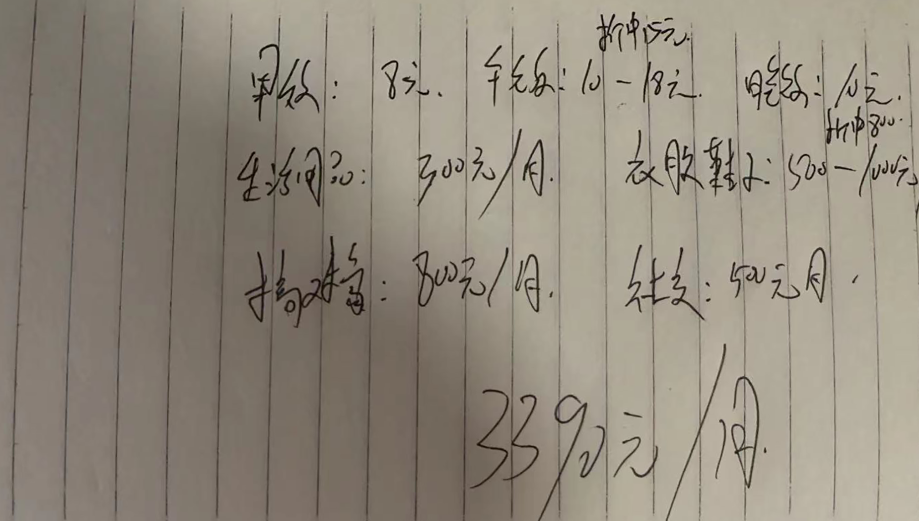 折中15元.
早饭: 8元. 午饭: 10-18元. 晚饭: 10元.
折中800.
生活用品: 300元/月. 衣服鞋子: 500-1000元
: 800元/月. 社交: 500元月.
3390元/月.